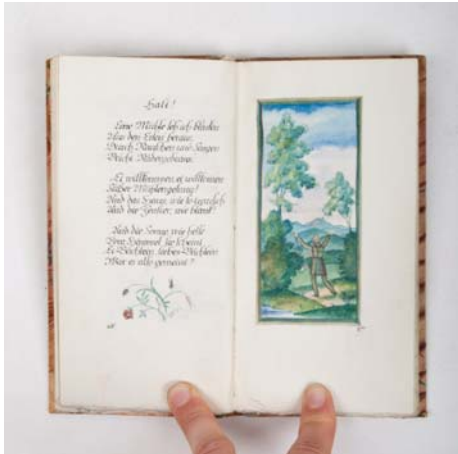 Halt!
Eine Mühle seh ich blinken
Aus den Erlen heraus,
Durch Rauschen und Singen
Bricht Rädergebraus.
Ei willkommen, ei willkommen
Süßer Mühlengesang!
Und das Haus, wie so traulich
Und die Fenster, wie blank!
Und die Sonne, wie helle
Vom Himmel sie scheint
Ei Bächlein, liebes Bächlein
War es also gemeint?